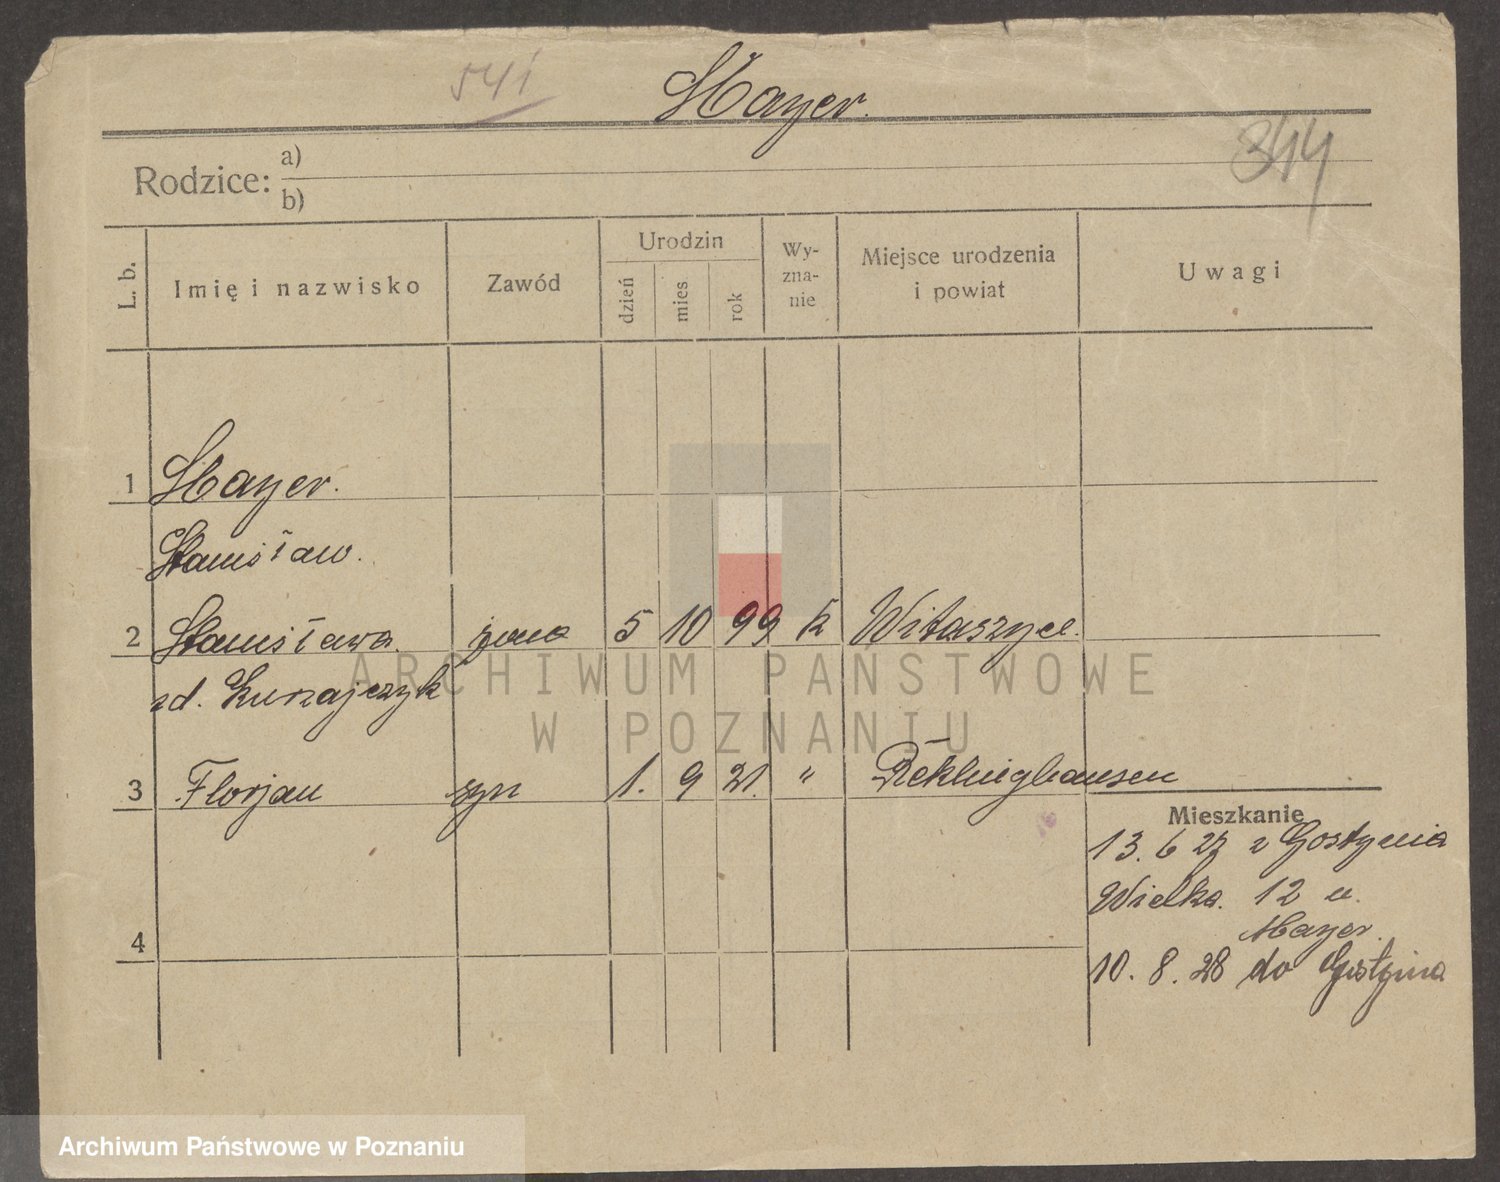 541
Mayer.
344
Rodzice: a)
b)
L. b.
Imię i nazwisko
Zawód
Urodzin
dzień
mies
rok
Wy-
zna-
nie
Miejsce urodzenia
i powiat
Uwagi
1 Mayer.
Stanisław.
2 Stanisława. żona 5 10 99 k Witaszyce.
zd.
3 Florjan syn 1. 9 21. " Reklinghausen
Mieszkanie
13. 6 27 z Gostynia
Wielka. 12 u.
Mayer.
4
10. 8. 28 do Gostynia
ARCHIWUM PAŃSTWOWE
W POZNANIU
Archiwum Państwowe w Poznaniu